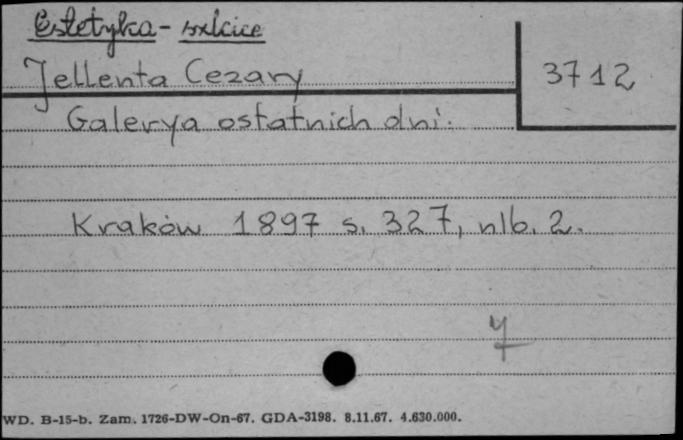 Estetyka - szkice
Jellenta Cezary
3712
Galerya ostatnich dni.
Kraków 1897 s. 327, nlb. 2.
WD. B-15-b. Zam. 1726-DW-On-67. GDA-3198. 8.11.67. 4.630.000.